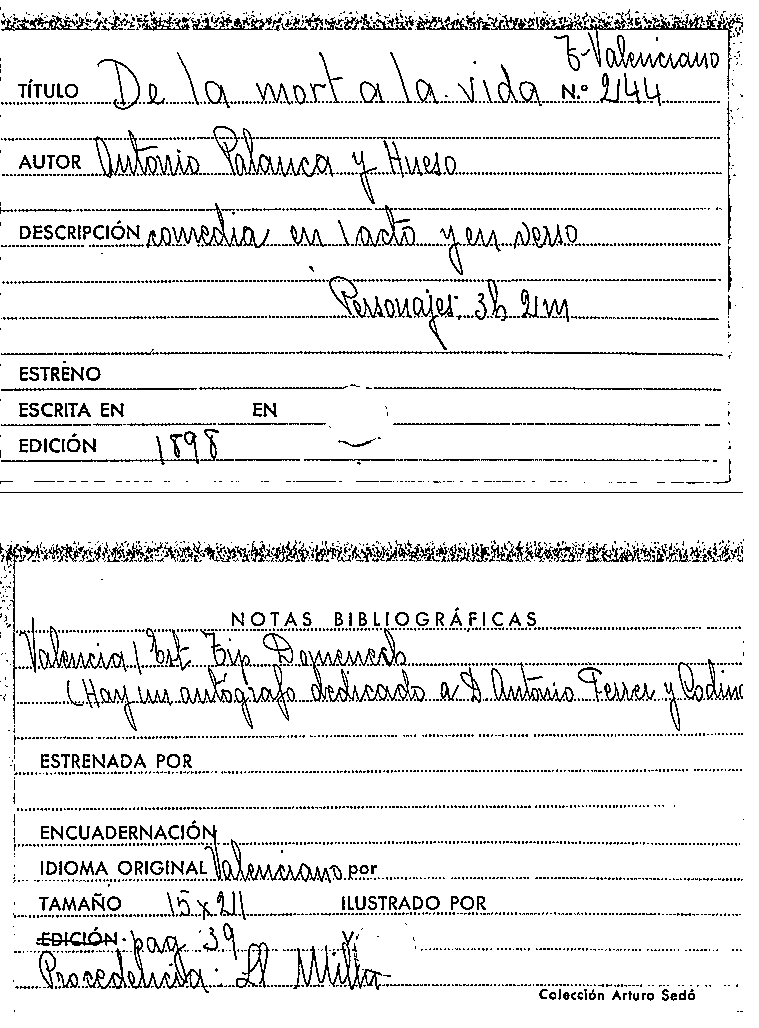 T-Valenciano
TÍTULO De la mort a la vida N.º 2144
AUTOR Antonio Palanca y Hueso
DESCRIPCIÓN comedia en 1 acto y en verso
Personajes: 3h 2m
ESTRENO
ESCRITA EN EN
EDICIÓN 1898
NOTAS BIBLIOGRÁFICAS
Valencia / Est. Tip Domenech
(Hay un autógrafo dedicado a D. Antonio Ferrer y Codina
ESTRENADA POR
ENCUADERNACIÓN
IDIOMA ORIGINAL Valenciano por
TAMAÑO 15 x 21 ILUSTRADO POR
EDICIÓN pag 39
Procedencia: Ll Millá
Colección Arturo Sedó